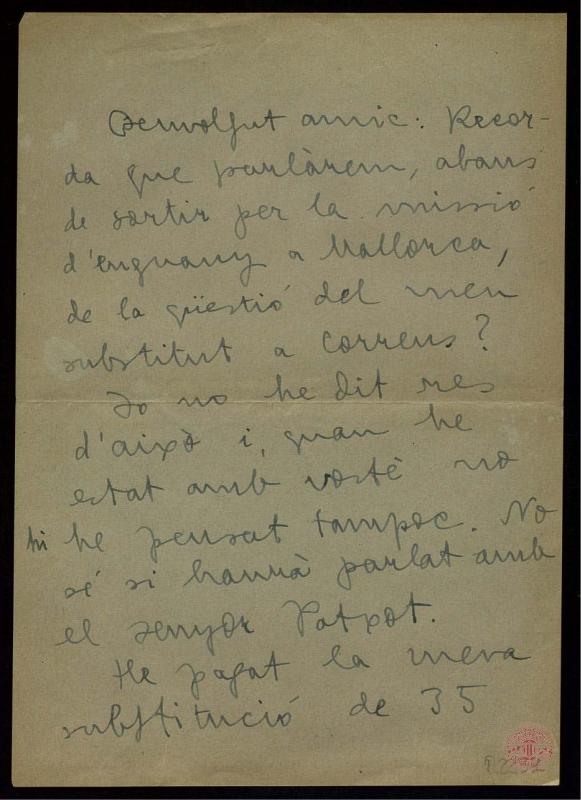 Benvolgut amic: Recor-
da que parlàrem, abans
de sortir per la missió
d'enguany a Mallorca,
de la qüestió del meu
substitut a correus?
Jo no he dit res
d'això i, quan he
estat amb vostè no
hi he pensat tampoc. No
sé si haurà parlat amb
el senyor Patxot.
He pagat la meva
substitució de 35